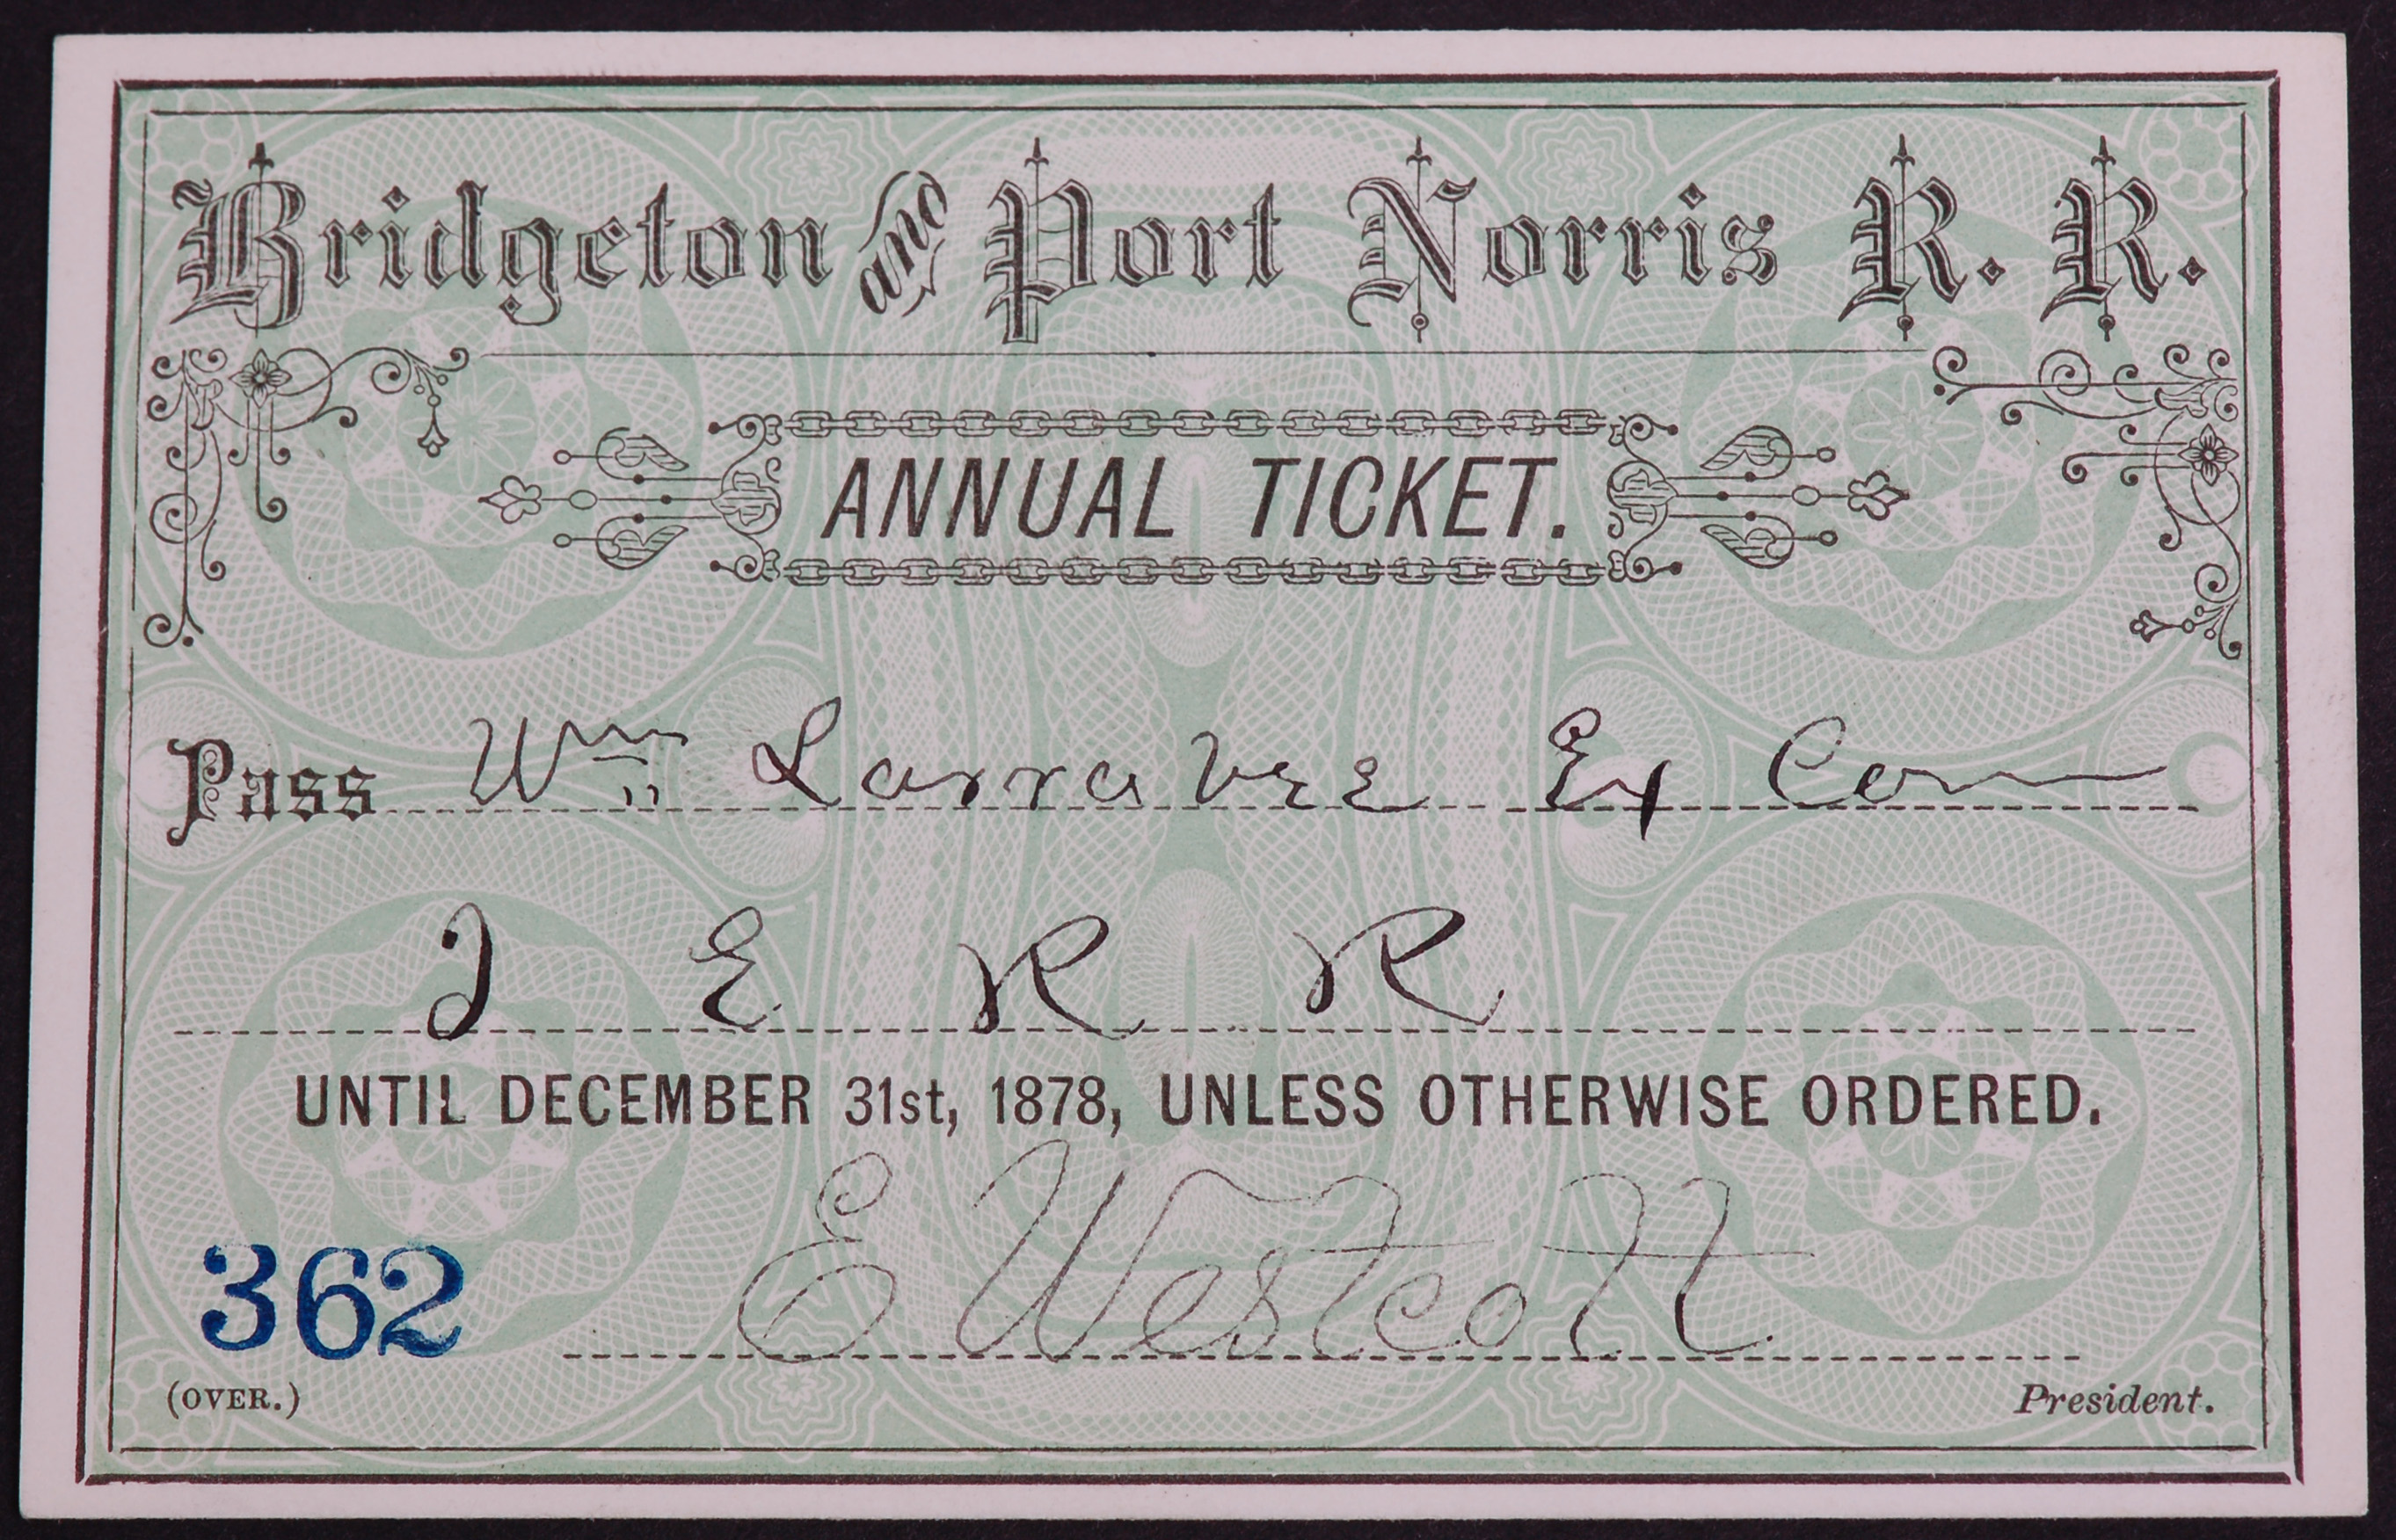 Bridgeton and Port Norris R. R.
ANNUAL TICKET.
Pass Wm Larrabee Ex Com
I E R R
UNTIL DECEMBER 31st, 1878, UNLESS OTHERWISE ORDERED.
E Westcott
362
(OVER.) President.